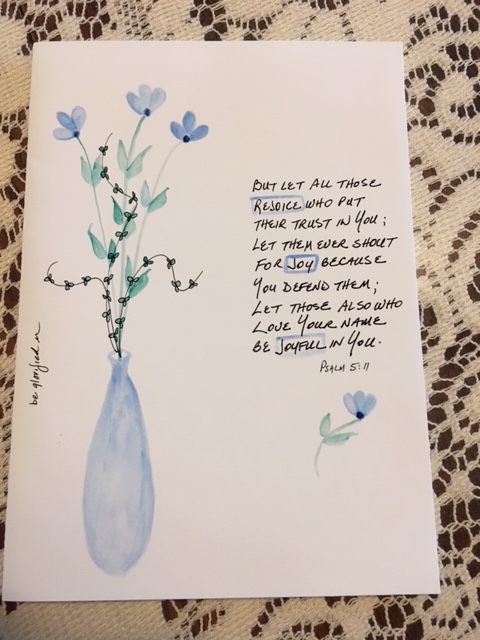 BUT LET ALL THOSE
REJOICE WHO PUT
THEIR TRUST IN YOU;
LET THEM EVER SHOUT
FOR JOY BECAUSE
YOU DEFEND THEM;
LET THOSE ALSO WHO
LOVE YOUR NAME
BE JOYFUL IN YOU.
PSALM 5:11
be glorified